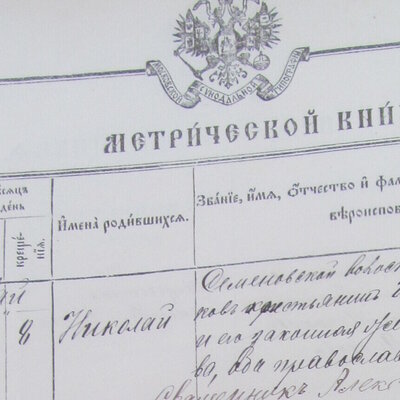 МОСКОВСКОЙ СѴНОДАЛЬНОЙ ТИПОГРАФІИ
МЕТРИ́ЧЕСКОЙ КНИ́
мѣсяцъ
день
креще́нія.
И҆мена̀ роди́вшихся.
Зва́нїе, и҆́мѧ, ѻ҆́тчество и҆ фа
вѣроиспов
8
Николай
Семеновской волос
ковъ крестьянинъ
и его законная
ва, оба православ
Священникъ Алекс